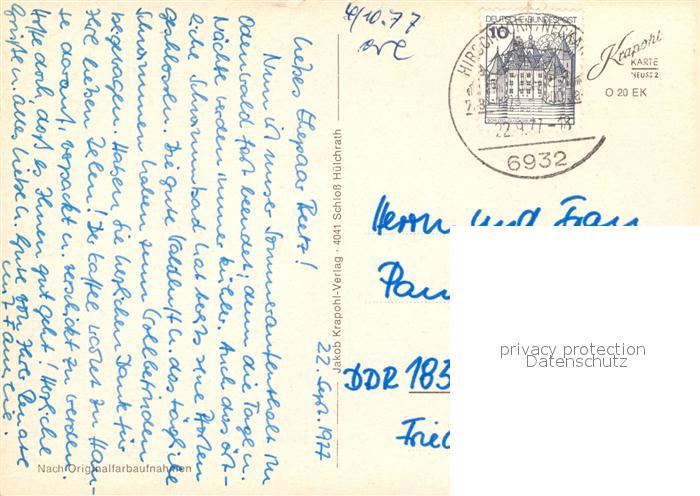 4/10.77
DEUTSCHE BUNDESPOST
10
22.9.77-18
6932
Krapohl
KARTE
NEUSS 2
O 20 EK
22. Sept. 1977
Liebes Ehepaar
Nun ist unser Sommeraufenthalt im
Odenwald fast beendet, denn die Tage u.
Nächte werden immer kühler. Auch das ört-
liche Schwimmbad hat bereits seine Pforten
geschlossen. Die gute Waldluft u. das tägliche
Schwimmen haben zum Wohlbefinden
beigetragen. Haben Sie herzlichen Dank für
Ihre lieben Zeilen! Der Kaffee wartet zu Hau-
se darauf, verpackt u. verschickt zu werden.
Hoffe doch, daß es Ihnen gut geht! Herzliche
Grüße u. alles Liebe u. Gute von Ihrer Renate
mit Familie.
Jakob Krapohl-Verlag · 4041 Schloß Hülchrath
Nach Originalfarbaufnahmen
Herrn und Frau
Pau
DDR 183
Fried
privacy protection
Datenschutz